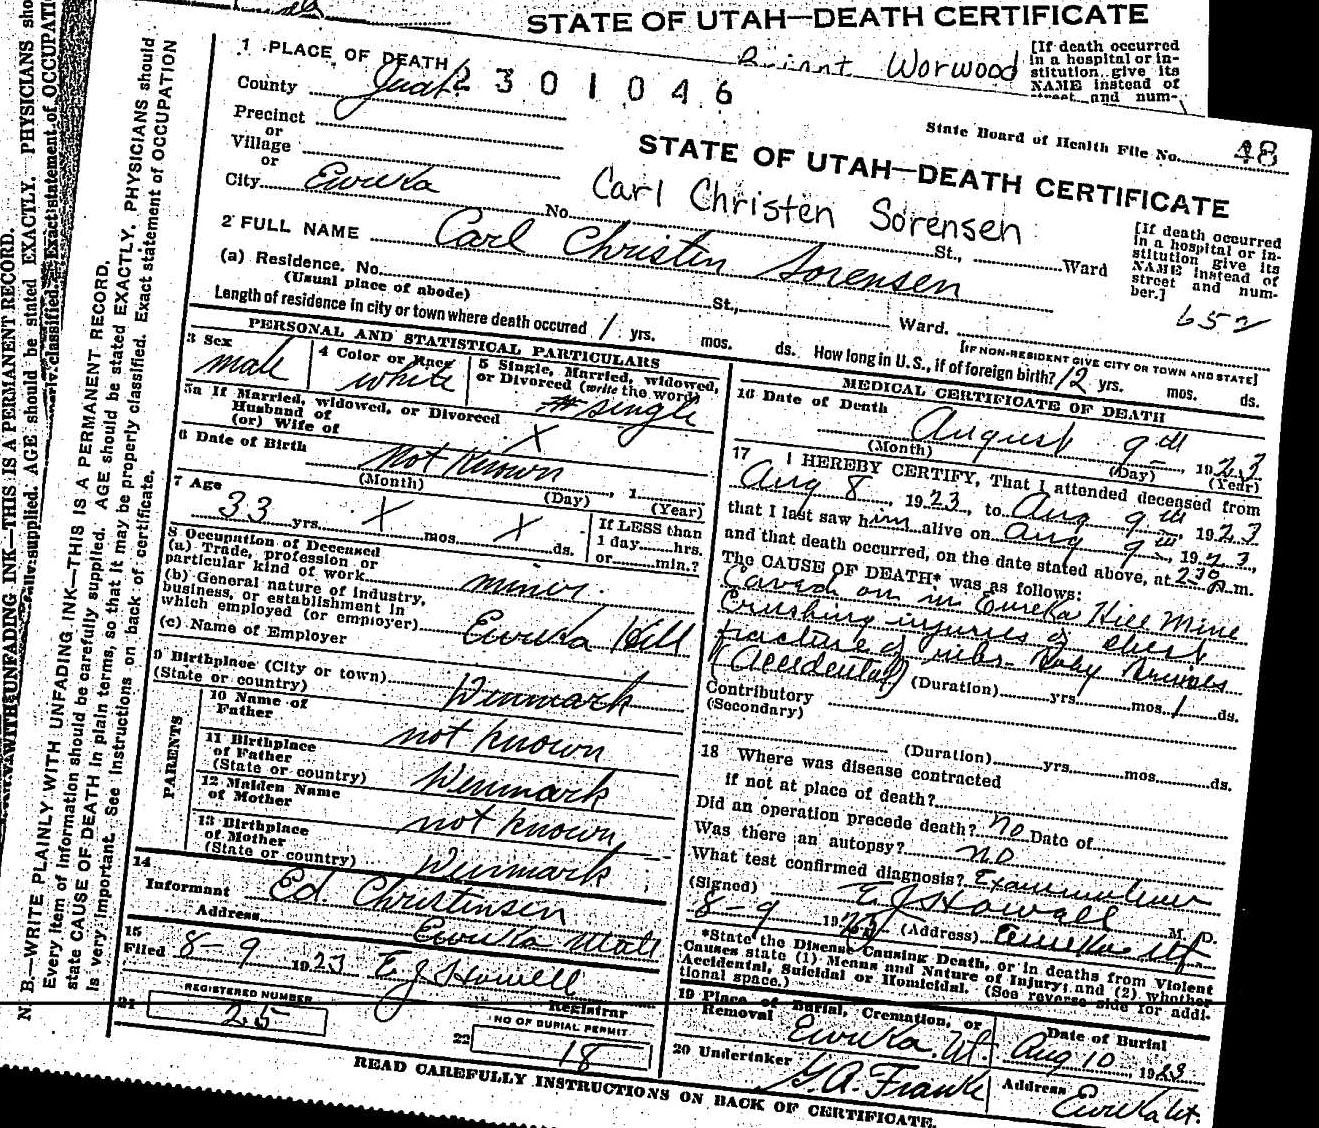 STATE OF UTAH—DEATH CERTIFICATE
Worwood
[If death occurred
in a hospital or in-
stitution, give its
NAME instead of
street and num-
1 PLACE OF DEATH
2301046
County Juab
State Board of Health File No. 48
Precinct
or
Village
or
City Eureka
STATE OF UTAH—DEATH CERTIFICATE
Carl Christen Sorensen
No. St., Ward
[If death occurred
in a hospital or in-
stitution give its
NAME instead of
street and num-
ber.]
652
2 FULL NAME Carl Christen Sorensen
(a) Residence. No. St., Ward.
(Usual place of abode)
[IF NON-RESIDENT GIVE CITY OR TOWN AND STATE]
Length of residence in city or town where death occured 1 yrs. mos. ds. How long in U.S., if of foreign birth? 12 yrs. mos. ds.
PERSONAL AND STATISTICAL PARTICULARS
3 Sex
male
4 Color or Race
white
5 Single, Married, widowed,
or Divorced (write the word)
single
5a If Married, widowed, or Divorced
Husband of
(or) Wife of X
6 Date of Birth
Not Known , 1
(Month) (Day) (Year)
7 Age
33 yrs. X mos. X ds.
If LESS than
1 day hrs.
or min.?
8 Occupation of Deceased
(a) Trade, profession or
particular kind of work miner.
(b) General nature of industry,
business, or establishment in
which employed (or employer)
(c) Name of Employer Eureka Hill
9 Birthplace (City or town)
(State or country) Denmark
PARENTS
10 Name of
Father not known
11 Birthplace
of Father
(State or country) Denmark
12 Maiden Name
of Mother not known
13 Birthplace
of Mother
(State or country) Denmark
14
Informant Ed. Christensen
Address Eureka Utah
15
Filed 8-9 1923 E J Howell
Registrar
21 REGISTERED NUMBER
25
22 NO OF BURIAL PERMIT
18
MEDICAL CERTIFICATE OF DEATH
16 Date of Death
August 9th, 1923
(Month) (Day) (Year)
17 I HEREBY CERTIFY, That I attended deceased from
Aug 8, 1923, to Aug 9th, 1923
that I last saw him alive on Aug 9th, 1923,
and that death occurred, on the date stated above, at 2:30 P.m.
The CAUSE OF DEATH* was as follows:
Caved on in Eureka Hill Mine
Crushing injuries of chest
fracture of ribs - Body Bruises
(Accidental) (Duration) yrs. mos. 1 ds.
Contributory
(Secondary)
(Duration) yrs. mos. ds.
18 Where was disease contracted
if not at place of death?
Did an operation precede death? no Date of
Was there an autopsy? no
What test confirmed diagnosis? Examination
(Signed) E J Howell M. D.
8-9 1923 (Address) Eureka Ut
*State the Disease Causing Death, or in deaths from Violent
Causes state (1) Means and Nature of Injury; and (2) whether
Accidental, Suicidal or Homicidal. (See reverse side for addi-
tional space.)
19 Place of Burial, Cremation, or
Removal Eureka. Ut.
Date of Burial
Aug 10, 1923
20 Undertaker
G. A. Franke
Address
Eureka Ut.
READ CAREFULLY INSTRUCTIONS ON BACK OF CERTIFICATE.
N. B.—WRITE PLAINLY WITH UNFADING INK—THIS IS A PERMANENT RECORD.
Every item of information should be carefully supplied. AGE should be stated EXACTLY. PHYSICIANS should
state CAUSE OF DEATH in plain terms, so that it may be properly classified. Exact statement of OCCUPATION
is very important. See instructions on back of certificate.
WITH UNFADING INK—THIS IS A PERMANENT RECORD.
supplied. AGE should be stated EXACTLY. PHYSICIANS sho
classified. Exact statement of OCCUPATI